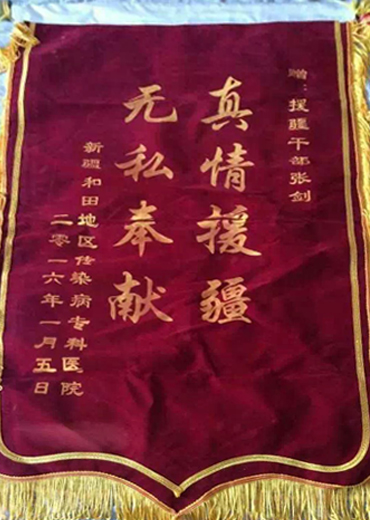 赠：援疆干部张剑
真情援疆
无私奉献
新疆和田地区传染病专科医院
二零一六年一月五日